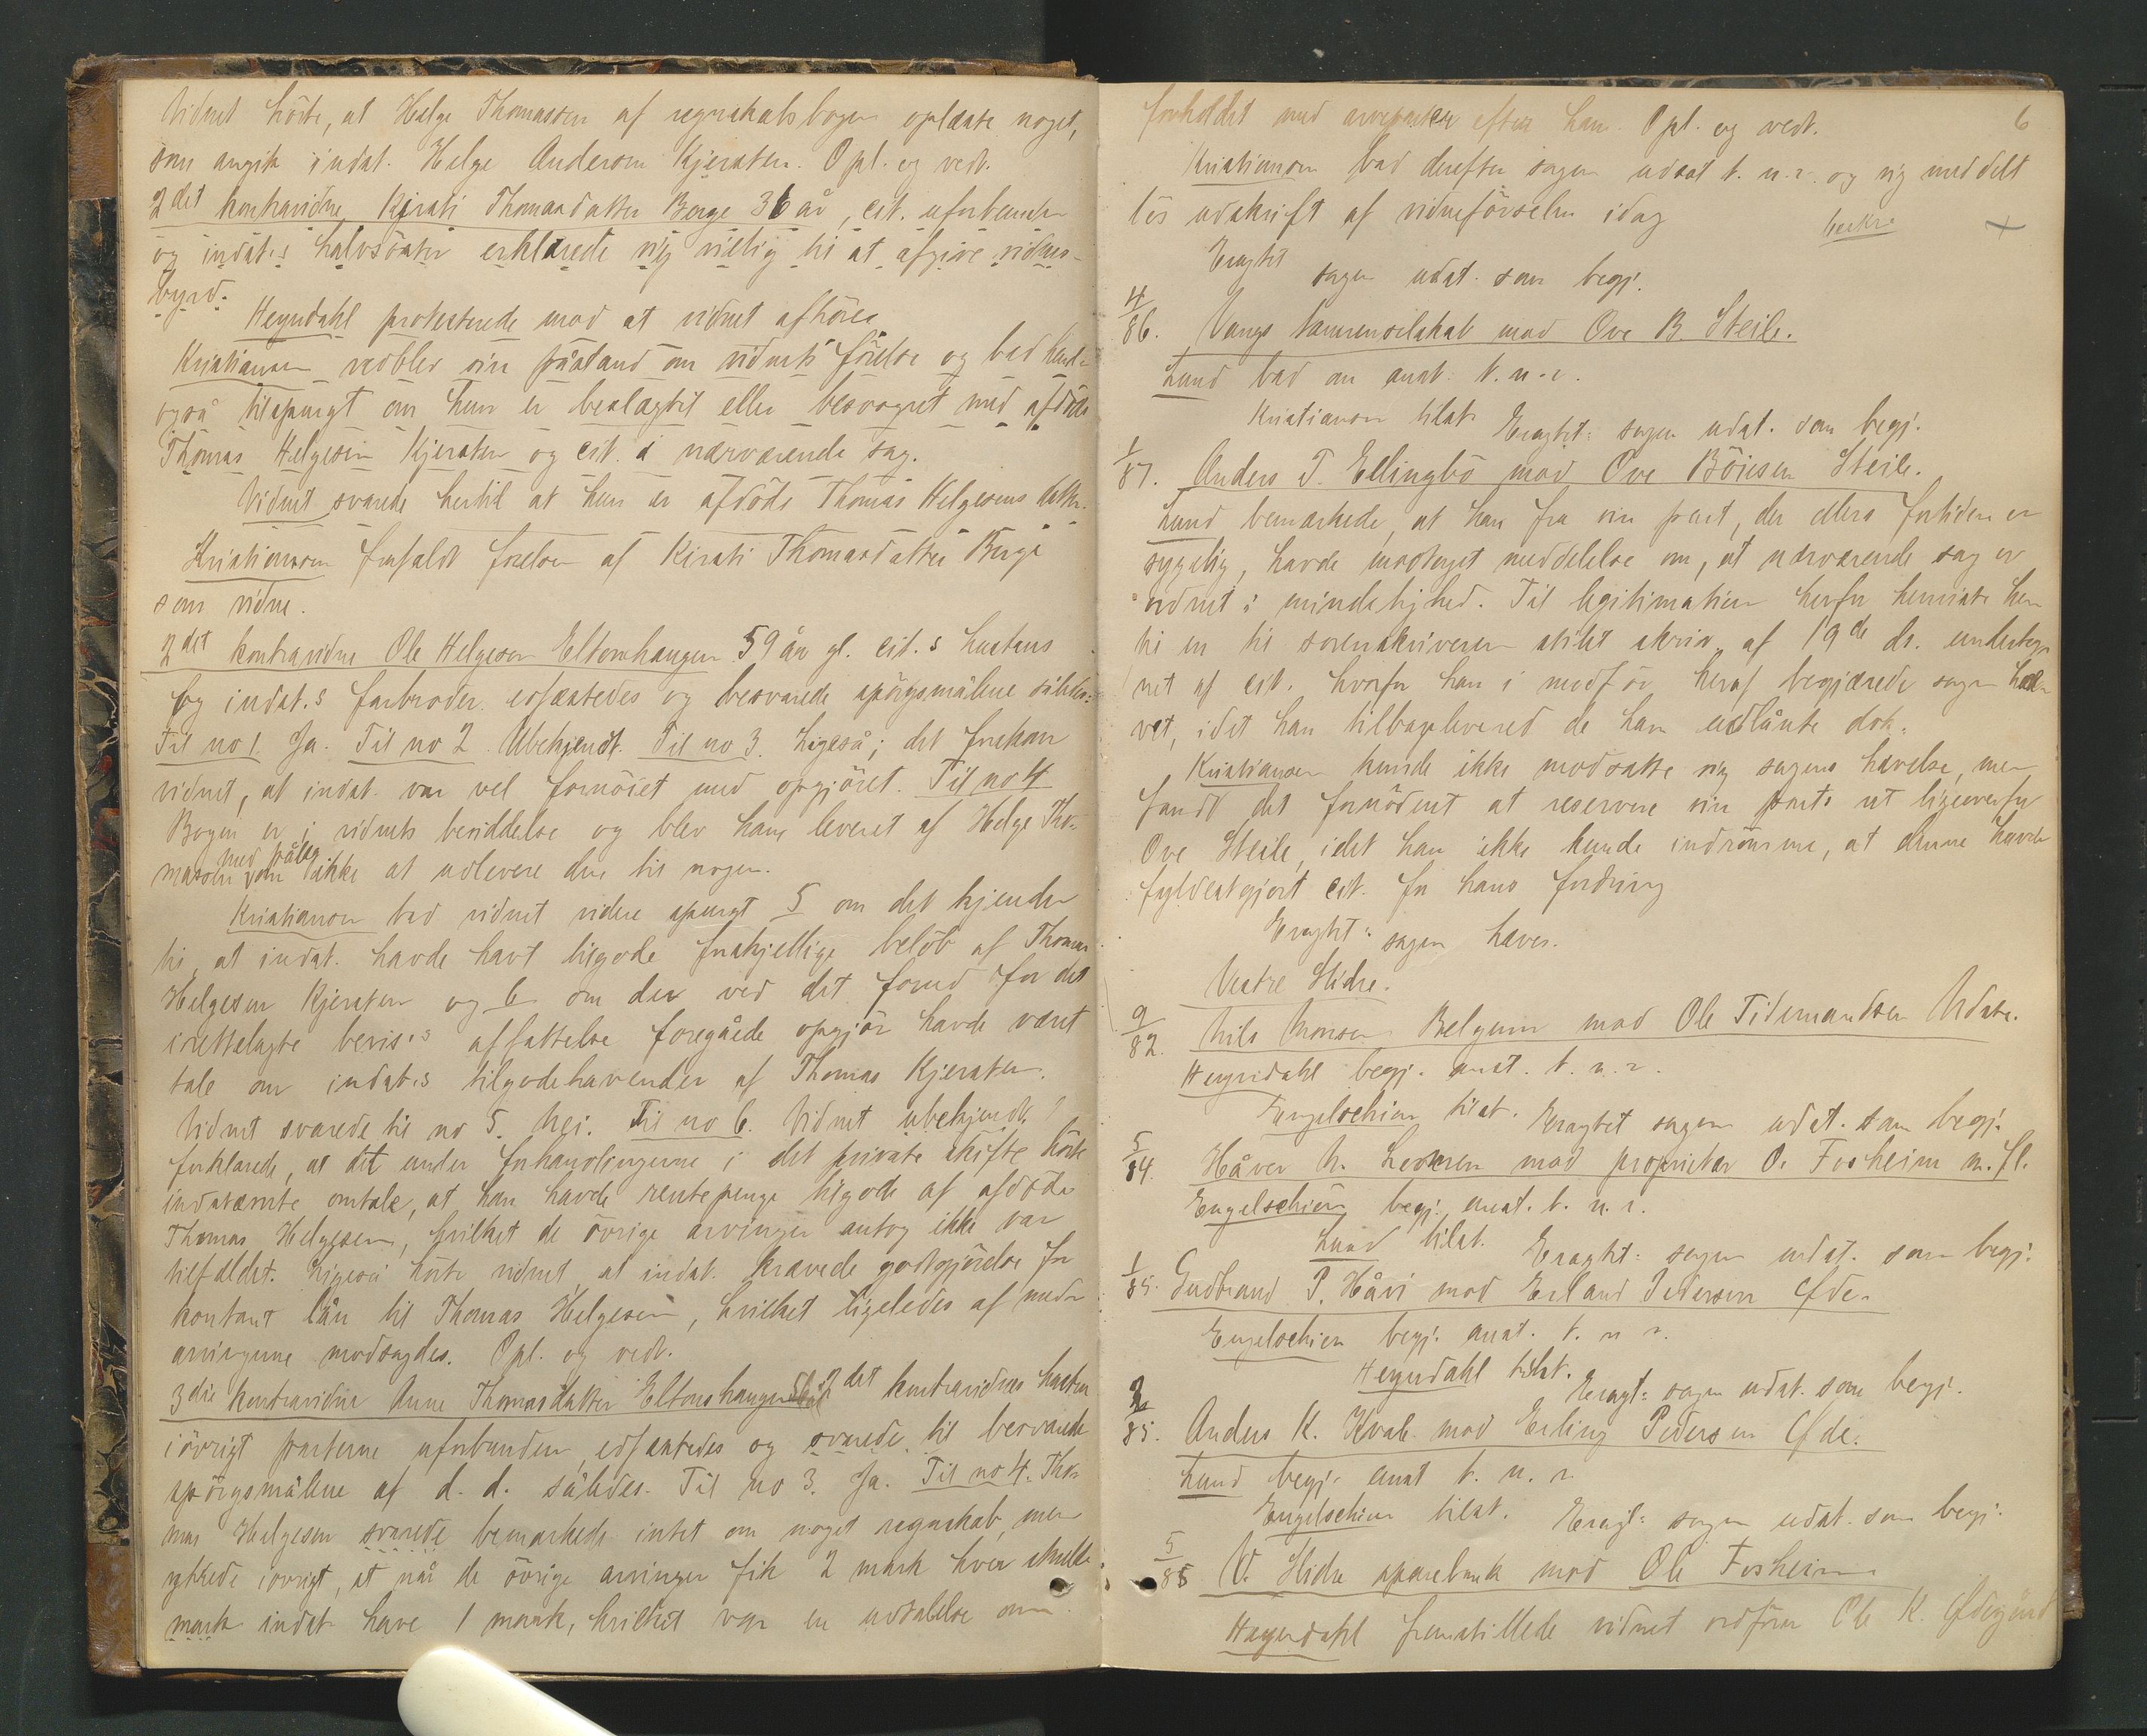 Vidnet hörte, at Helge Thomassen af regnskabsbogen oplæste noget,
som angik indst. Helge Anderson Kjersten. Opl. og vedt.
2det kontravidne Kirsti Thomasdatter Berge 36 år, cit. uforbunden
og indst.s halvsöster erklærede sig villig til at afgive vidnes-
byrd.
Heyerdahl protesterede mod at vidnet afhöres
Kristiansen vedblev sin påstand om vidnets förelse og bad hende
også tilspurgt om hun er beslægtet eller besvogret med afdöde
Thomas Helgesen Kjersten og cit. i nærværende sag.
Vidnet svarede hertil at hun er afdöde Thomas Helgesens datter.
Kristiansen frafaldt förelsen af Kirsti Thomasdatter Berge
som vidne.
2det kontravidne Ole Helgesen Eltonhaugen 59 år gl. cit.s hustrus
og indst.s farbroder edfæstedes og besvarede spörgsmålene således:
Til no 1. Ja. Til no 2 Ubekjendt. Til no 3. Ligeså; det forekom
vidnet, at indst. var vel fornöiet med opgjöret. Til no 4
Bogen er i vidnets besiddelse og blev ham leveret af Helge Tho-
med pålæg
massen om ikke at udlevere den til nogen.
Kristiansen bad vidnet videre spurgt 5 om det kjender
til, at indst. havde havt tilgode forskjellige belöb af Thomas
Helgesen Kjersten og 6 om der ved det forud for det
irettelagte bevis.s affattelse foregåede opgjör havde været
tale om indst.s tilgodehavender af Thomas Kjersten.
Vidnet svarede til no 5. Nei. Til no 6. Vidnet ubekjendt,
forklarede, at det under forhandlingerne i det private skifte hörte
indstævnte omtale, at han havde rentepenge tilgode af afdöde
Thomas Helgesen, hvilket de övrige arvinger antog ikke var
tilfældet. Ligeså hörte vidnet at indst. krævede godtgjörelse for
kontant lån til Thomas Helgesen, hvilket ligeledes af med-
arvingerne modsagdes. Opl. og vedt.
3die kontravidne Anne Thomasdatter Eltonshaugen 2det kontravidnes hustru
iövrigt parterne uforbunden, edfæstedes og svarede til besvarede
spörgsmålene af d. d. således. Til no 3. Ja. Til no 4. Tho-
mas Helgesen svarede bemærkede intet om noget regnskab, men
ytrede iövrigt, at når de övrige arvinger fik 2 mark hver skulde
mark indst. have 1 mark, hvilket var en udtalelse om
6
forholdet med arveparter efter ham. Opl. og vedt.
Kristiansen bad derefter sagen udsat t. n. r. og sig meddelt
lös udskrift af vidneförselen idag
beskr.
Eragtet sagen udst. som begj.
4/86. Vangs sammenselskab mod Ove B. Steile.
Lund bad om anst. t. n. r.
Kristiansen tilst. Eragtet: sagen udst. som begj.
1/87. Anders T. Ellingbö mod Ove Börresen Steile.
Lund bemærkede, at han fra sin part, der ellers fortiden er
sygelig, havde modtaget meddelelse om, at nærværende sag er
ordnet i mindelighed. Til legitimation herfor henviste han
til en til sorenskriveren stilet skriv. af 19de ds. underteg-
net af cit. hvorfor han i medför heraf begjærede sagen hæ-
vet, idet han tilbagelevered de ham udlånte dok.
Kristiansen kunde ikke modsætte sig sagens hævelse, men
fandt det fornödent at reservere sin parts ret ligeoverfor
Ove Steile, idet han ikke kunde indrömme, at denne havde
fyldestgjort cit. for hans fordring
Eragtet: sagen hæves.
Vestre Slidre.
9/82. Nils Monsen Belgum mod Ole Tidemandsen Udstu.
Heyerdahl begj. anst. t. n. r.
Engelschiön tilst. Eragtet sagen udst. som begj.
5/84. Håver N. Lecmen mod proprietær O. Fosheim m. fl.
Engelschiön begj. anst. t. n. r.
Lund tilst. Eragtet: sagen udst. som begj.
1/85. Gudbrand P. Håvi mod Erland Pedersen Öde.
Engelschiön begj. anst. t. n r.
Heyerdahl tilst. Eragt: sagen udst. som begj.
2/85. Anders K. Kvale mod Erling Pedersen Öde.
Lund begj. anst t. n. r.
Engelschiön tilst. Eragt: sagen udst. som begj.
5/85 V. Slidre sparebank mod Ole Fosheim
Heyerdahl fremstillede vidnet ordförer Ole K. Ödegård